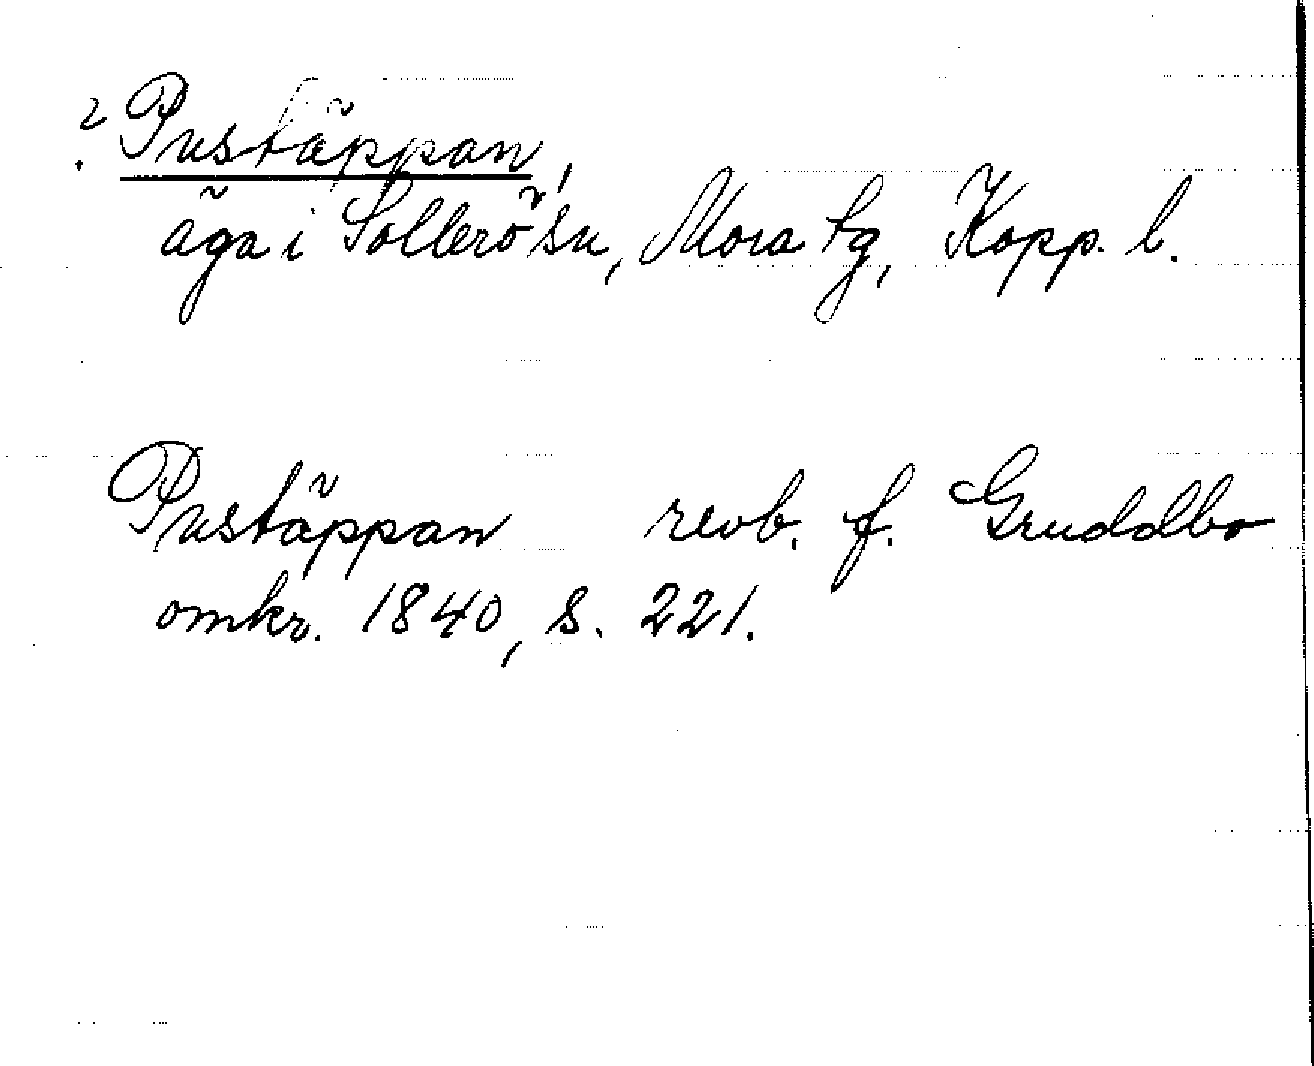 ? Pustäppan,
äga i Sollerö sn, Mora tg, Kopp. l.
Pustäppan revb. f. Gruddbo
omkr. 1840, s. 221.